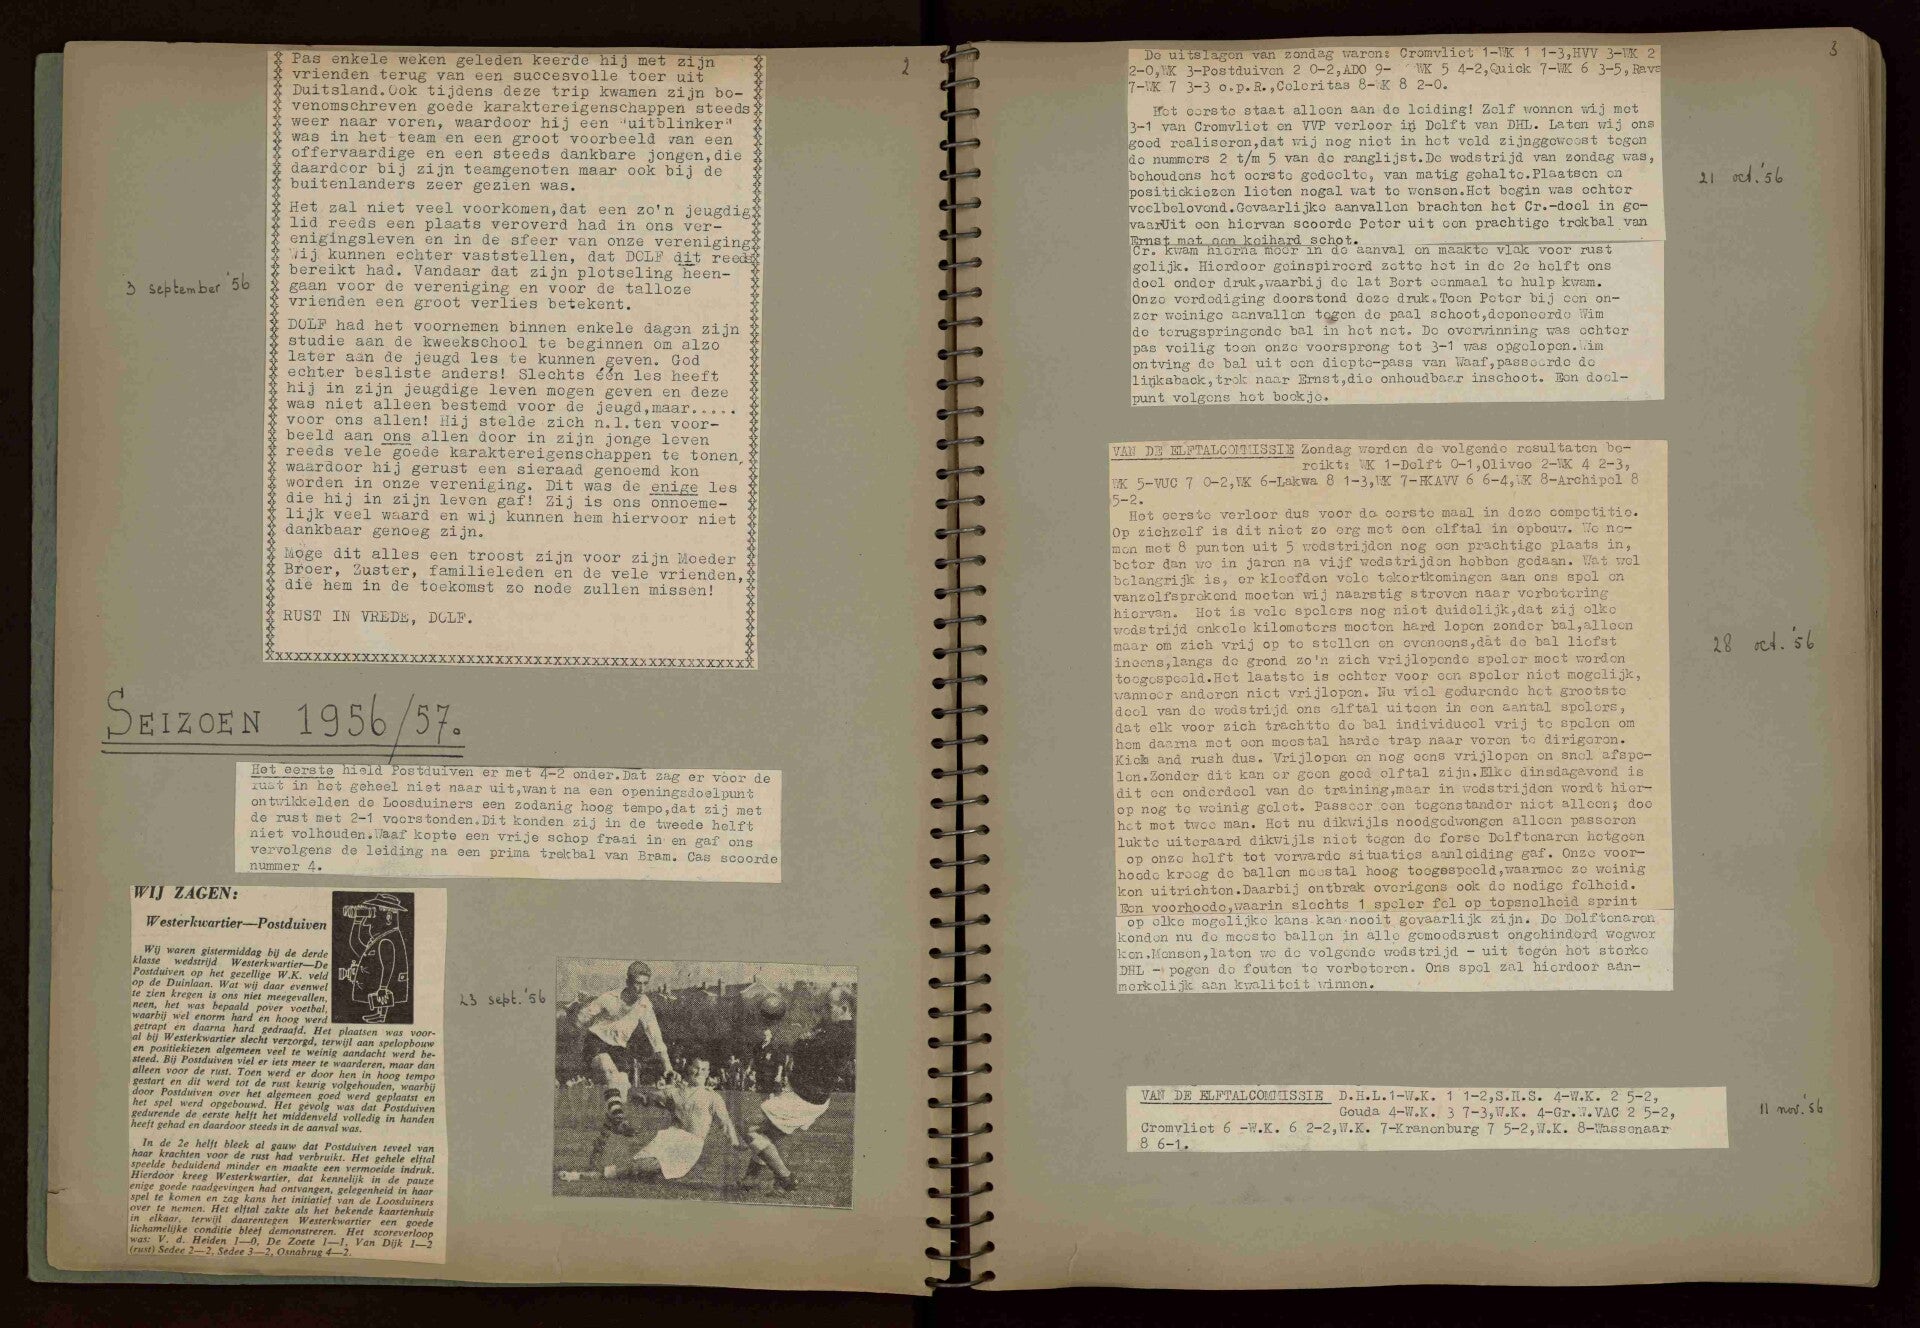 2
Pas enkele weken geleden keerde hij met zijn
vrienden terug van een succesvolle toer uit
Duitsland.Ook tijdens deze trip kwamen zijn bo-
venomschreven goede karaktereigenschappen steeds
weer naar voren, waardoor hij een "uitblinker"
was in het team en een groot voorbeeld van een
offervaardige en een steeds dankbare jongen,die
daardoor bij zijn teamgenoten maar ook bij de
buitenlanders zeer gezien was.
Het zal niet veel voorkomen,dat een zo'n jeugdig
lid reeds een plaats veroverd had in ons ver-
enigingsleven en in de sfeer van onze vereniging
Wij kunnen echter vaststellen, dat DOLF dit reeds
bereikt had. Vandaar dat zijn plotseling heen-
gaan voor de vereniging en voor de talloze
vrienden een groot verlies betekent.
3 september '56
DOLF had het voornemen binnen enkele dagen zijn
studie aan de kweekschool te beginnen om alzo
later aan de jeugd les te kunnen geven. God
echter besliste anders! Slechts één les heeft
hij in zijn jeugdige leven mogen geven en deze
was niet alleen bestemd voor de jeugd,maar.....
voor ons allen! Hij stelde zich n.l.ten voor-
beeld aan ons allen door in zijn jonge leven
reeds vele goede karaktereigenschappen te tonen,
waardoor hij gerust een sieraad genoemd kon
worden in onze vereniging. Dit was de enige les
die hij in zijn leven gaf! Zij is ons onnoeme-
lijk veel waard en wij kunnen hem hiervoor niet
dankbaar genoeg zijn.
Moge dit alles een troost zijn voor zijn Moeder
Broer, Zuster, familieleden en de vele vrienden,
die hem in de toekomst zo node zullen missen!
RUST IN VREDE, DOLF.
xxxxxxxxxxxxxxxxxxxxxxxxxxxxxxxxxxxxxxxxxxxxxxxx
SEIZOEN 1956/57.
Het eerste hield Postduiven er met 4-2 onder.Dat zag er voor de
rust in het geheel niet naar uit,want na een openingsdoelpunt
ontwikkelden de Loosduiners een zodanig hoog tempo,dat zij met
de rust met 2-1 voorstonden.Dit konden zij in de tweede helft
niet volhouden.Waaf kopte een vrije schop fraai in en gaf ons
vervolgens de leiding na een prima trekbal van Bram. Cas scoorde
nummer 4.
WIJ ZAGEN:
Westerkwartier—Postduiven
Wij waren gistermiddag bij de derde
klasse wedstrijd Westerkwartier—De
Postduiven op het gezellige W.K. veld
op de Duinlaan. Wat wij daar evenwel
te zien kregen is ons niet meegevallen,
neen, het was bepaald pover voetbal,
waarbij wel enorm hard en hoog werd
getrapt en daarna hard gedraafd. Het plaatsen was voor-
al bij Westerkwartier slecht verzorgd, terwijl aan spelopbouw
en positiekiezen algemeen veel te weinig aandacht werd be-
steed. Bij Postduiven viel er iets meer te waarderen, maar dan
alleen voor de rust. Toen werd er door hen in hoog tempo
gestart en dit werd tot de rust keurig volgehouden, waarbij
door Postduiven over het algemeen goed werd geplaatst en
het spel werd opgebouwd. Het gevolg was dat Postduiven
gedurende de eerste helft het middenveld volledig in handen
heeft gehad en daardoor steeds in de aanval was.
In de 2e helft bleek al gauw dat Postduiven teveel van
haar krachten voor de rust had verbruikt. Het gehele elftal
speelde beduidend minder en maakte een vermoeide indruk.
Hierdoor kreeg Westerkwartier, dat kennelijk in de pauze
enige goede raadgevingen had ontvangen, gelegenheid in haar
spel te komen en zag kans het initiatief van de Loosduiners
over te nemen. Het elftal zakte als het bekende kaartenhuis
in elkaar, terwijl daarentegen Westerkwartier een goede
lichamelijke conditie bleef demonstreren. Het scoreverloop
was: V. d. Heiden 1—0, De Zoete 1—1, Van Dijk 1—2
(rust) Sedee 2—2, Sedee 3—2, Osnabrug 4—2.
23 sept.'56
3
De uitslagen van zondag waren: Cromvliet 1-WK 1 1-3,HVV 3-WK 2
2-0,WK 3-Postduiven 2 0-2,ADO 9- WK 5 4-2,Quick 7-WK 6 3-5,Rava
7-WK 7 3-3 o.p.R.,Celeritas 8-WK 8 2-0.
Het eerste staat alleen aan de leiding! Zelf wonnen wij met
3-1 van Cromvliet en VVP verloor in Delft van DHL. Laten wij ons
goed realiseren,dat wij nog niet in het veld zijngeweest tegen
de nummers 2 t/m 5 van de ranglijst.De wedstrijd van zondag was,
behoudens het eerste gedeelte, van matig gehalte.Plaatsen en
positiekiezen lieten nogal wat te wensen.Het begin was echter
veelbelovend.Gevaarlijke aanvallen brachten het Cr.-doel in ge-
vaarUit een hiervan scoorde Peter uit een prachtige trekbal van
Ernst met een keihard schot.
Cr. kwam hierna meer in de aanval en maakte vlak voor rust
gelijk. Hierdoor geinspireerd zette het in de 2e helft ons
doel onder druk,waarbij de lat Bert eenmaal te hulp kwam.
Onze verdediging doorstond deze druk.Toen Peter bij een on-
zer weinige aanvallen tegen de paal schoot,deponeerde Wim
de terugspringende bal in het net. De overwinning was echter
pas veilig toen onze voorsprong tot 3-1 was opgelopen.Wim
ontving de bal uit een diepte-pass van Waaf,passeerde de
linksback,trok naar Ernst,die onhoudbaar inschoot. Een doel-
punt volgens het boekje.
21 oct.'56
VAN DE ELFTALCOMMISSIE Zondag werden de volgende resultaten be-
reikt: WK 1-Delft 0-1,Oliveo 2-WK 4 2-3,
WK 5-VUC 7 0-2,WK 6-Lakwa 8 1-3,WK 7-HKAVV 6 6-4,WK 8-Archipel 8
5-2.
Het eerste verloor dus voor de eerste maal in deze competitie.
Op zichzelf is dit niet zo erg met een elftal in opbouw. We ne-
men met 8 punten uit 5 wedstrijden nog een prachtige plaats in,
beter dan we in jaren na vijf wedstrijden hebben gedaan. Wat wel
belangrijk is, er kleefden vele tekortkomingen aan ons spel en
vanzelfsprekend moeten wij naarstig streven naar verbetering
hiervan. Het is vele spelers nog niet duidelijk,dat zij elke
wedstrijd enkele kilometers moeten hard lopen zonder bal,alleen
maar om zich vrij op te stellen en eveneens,dàt de bal liefst
ineens,langs de grond zo'n zich vrijlopende speler moet worden
toegespeeld.Het laatste is echter voor een speler niet mogelijk,
wanneer anderen niet vrijlopen. Nu viel gedurende het grootste
deel van de wedstrijd ons elftal uiteen in een aantal spelers,
dat elk voor zich trachtte de bal individueel vrij te spelen om
hem daarna met een meestal harde trap naar voren te dirigeren.
Kick and rush dus. Vrijlopen en nog eens vrijlopen en snel afspe-
len.Zonder dit kan er geen goed elftal zijn.Elke dinsdagavond is
dit een onderdeel van de training,maar in wedstrijden wordt hier-
op nog te weinig gelet. Passeer een tegenstander niet alleen; doe
het met twee man. Het nu dikwijls noodgedwongen alleen passeren
lukte uiteraard dikwijls niet tegen de forse Delftenaren hetgeen
op onze helft tot verwarde situaties aanleiding gaf. Onze voor-
hoede kreeg de ballen meestal hoog toegespeeld,waarmee ze weinig
kon uitrichten.Daarbij ontbrak overigens ook de nodige felheid.
Een voorhoede,waarin slechts 1 speler fel op topsnelheid sprint
op elke mogelijke kans kan nooit gevaarlijk zijn. De Delftenaren
konden nu de meeste ballen in alle gemoedsrust ongehinderd wegwer
ken.Mensen,laten we de volgende wedstrijd - uit tegen het sterke
DHL - pogen de fouten te verbeteren. Ons spel zal hierdoor aan-
merkelijk aan kwaliteit winnen.
28 oct.'56
VAN DE ELFTALCOMMISSIE D.H.L.1-W.K. 1 1-2,S.H.S. 4-W.K. 2 5-2,
Gouda 4-W.K. 3 7-3,W.K. 4-Gr.W.VAC 2 5-2,
Cromvliet 6 -W.K. 6 2-2,W.K. 7-Kranenburg 7 5-2,W.K. 8-Wassenaar
8 6-1.
11 nov.'56